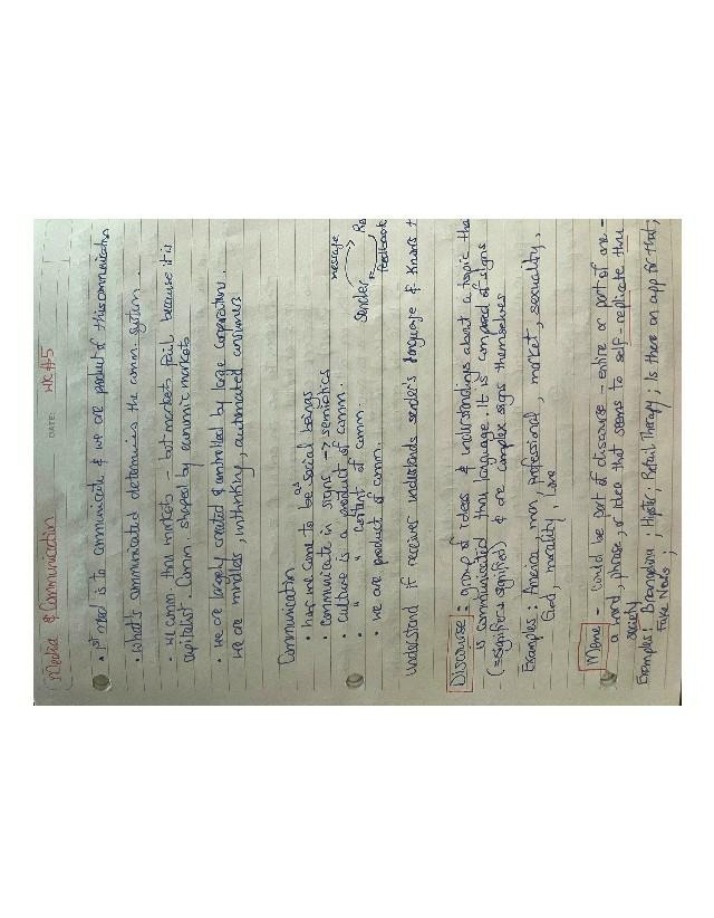 Media & Communication DATE: WK #5
• 1st need is to communicate & we are product of this communication
• What's communicated determines the comm. system.
• We comm. thru markets - but markets fail because it is
capitalist. Comm. shaped by economic markets
• We are largely created & controlled by large corporations.
We are mindless, unthinking, automated consumers
Communication
• how we came to be as social beings
• Communicate in signs → semiotics
• Culture is a product of comm.
• " " content of comm.
• We are product of comm.
message
Sender
Re
feedback
Understand if receiver understands sender's language & knows t
Discourse = group of ideas & understandings about a topic tha
is communicated thru language. It is composed of signs
(= signifier & signified) & are complex signs themselves
Examples: America, man, professional, market, sexuality,
God, morality, love
Meme - Could be part of discourse - entire or part of one -
a word, phrase, or idea that seems to self-replicate thru
society
Examples: Brangelina; Hipster; Retail Therapy; Is there an app for that;
Fake News;